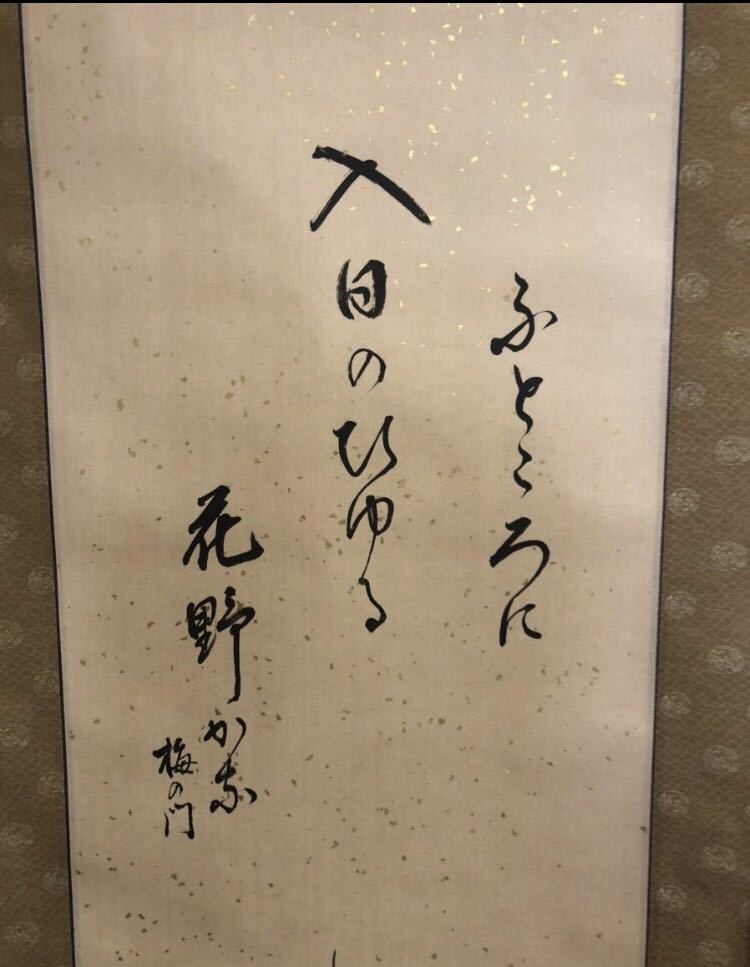 ふところに
入日のひゆる
花野かな
梅の門